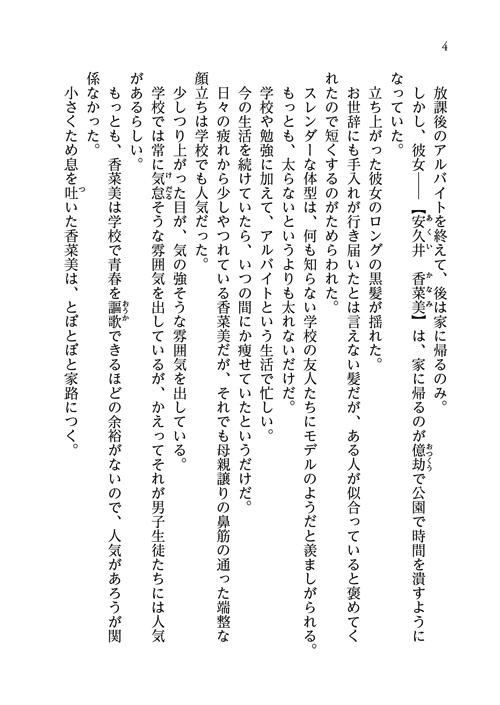 4
放課後のアルバイトを終えて、後は家に帰るのみ。
しかし、彼女――【安久井　香菜美】は、家に帰るのが億劫で公園で時間を潰すように
なっていた。
立ち上がった彼女のロングの黒髪が揺れた。
お世辞にも手入れが行き届いたとは言えない髪だが、ある人が似合っていると褒めてく
れたので短くするのがためらわれた。
スレンダーな体型は、何も知らない学校の友人たちにモデルのようだと羨ましがられる。
もっとも、太らないというよりも太れないだけだ。
学校や勉強に加えて、アルバイトという生活で忙しい。
今の生活を続けていたら、いつの間にか痩せていたというだけだ。
日々の疲れから少しやつれている香菜美だが、それでも母親譲りの鼻筋の通った端整な
顔立ちは学校でも人気だった。
少しつり上がった目が、気の強そうな雰囲気を出している。
学校では常に気怠そうな雰囲気を出しているが、かえってそれが男子生徒たちには人気
があるらしい。
もっとも、香菜美は学校で青春を謳歌できるほどの余裕がないので、人気があろうが関
係なかった。
小さくため息を吐いた香菜美は、とぼとぼと家路につく。